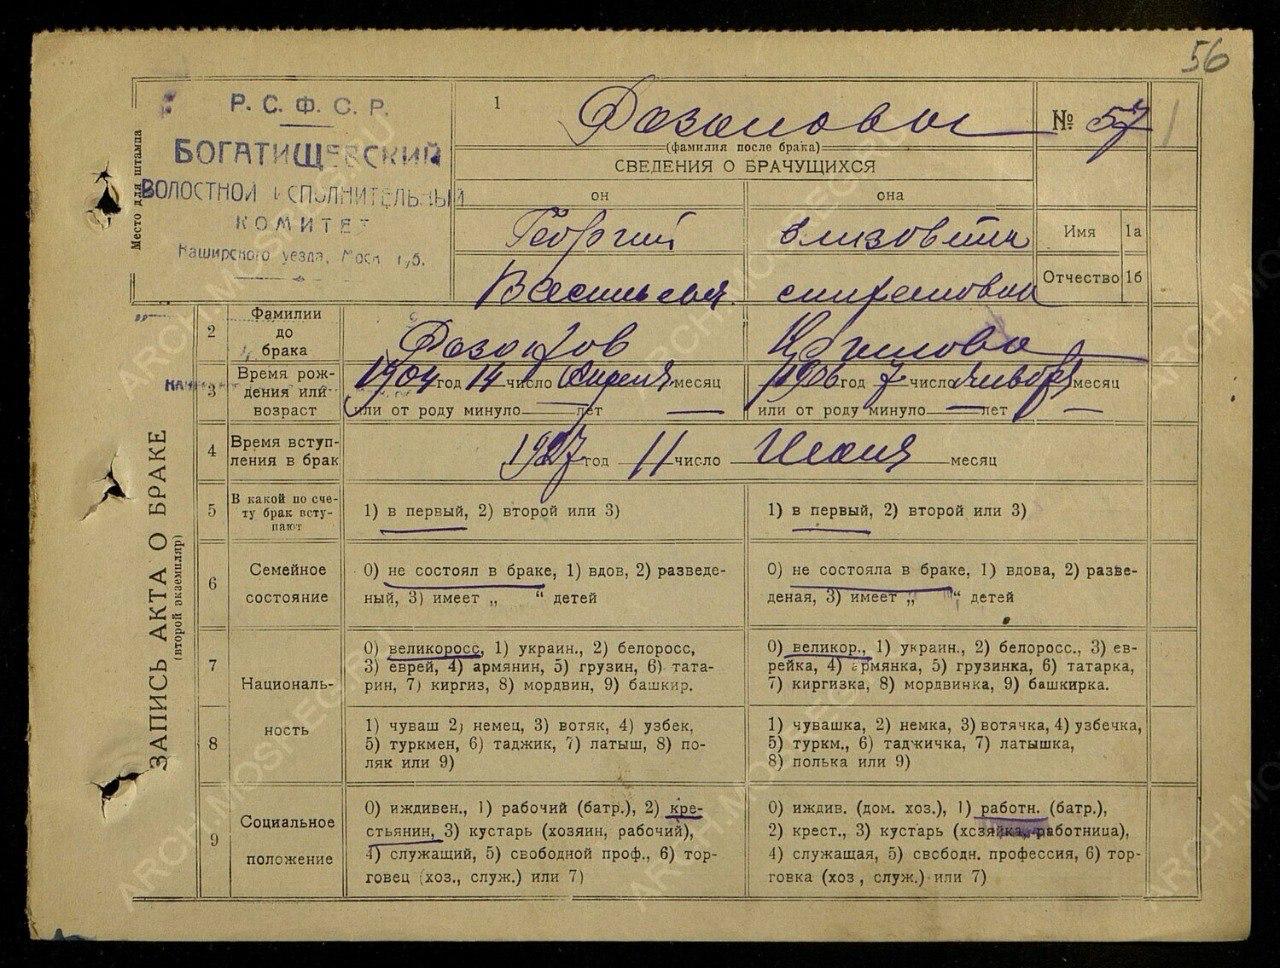 56
Р. С. Ф. С. Р.
БОГАТИЩЕВСКИЙ
ВОЛОСТНОЙ ИСПОЛНИТЕЛЬНЫЙ
КОМИТЕТ
Каширского уезда, Моск губ.
Место для штампа
1
№ 57
(фамилия после брака)
СВЕДЕНИЯ О БРАЧУЩИХСЯ
он
она
Георгий
Имя 1а
Васильевич
Отчество 1б
ЗАПИСЬ АКТА О БРАКЕ
(второй экземпляр)
2
Фамилии
до
брака
3
Время рож-
дения или
возраст
1904 год 14 число Апреля месяц
или от роду минуло лет
1906 год 7 число Января месяц
или от роду минуло лет
4
Время вступ-
ления в брак
1927 год 11 число месяц
5
В какой по сче-
ту брак всту-
пают
1) в первый, 2) второй или 3)
1) в первый, 2) второй или 3)
6
Семейное
состояние
0) не состоял в браке, 1) вдов, 2) разведе-
ный, 3) имеет „ “ детей
0) не состояла в браке, 1) вдова, 2) разве-
деная, 3) имеет „ “ детей
7
Националь-
ность
0) великоросс, 1) украин., 2) белоросс,
3) еврей, 4) армянин, 5) грузин, 6) тата-
рин, 7) киргиз, 8) мордвин, 9) башкир.
0) великор., 1) украин., 2) белоросс., 3) ев-
рейка, 4) армянка, 5) грузинка, 6) татарка,
7) киргизка, 8) мордвинка, 9) башкирка.
8
1) чуваш 2) немец, 3) вотяк, 4) узбек,
5) туркмен, 6) таджик, 7) латыш, 8) по-
ляк или 9)
1) чувашка, 2) немка, 3) вотячка, 4) узбечка,
5) туркм., 6) таджичка, 7) латышка,
8) полька или 9)
9
Социальное
положение
0) иждивен., 1) рабочий (батр.), 2) кре-
стьянин, 3) кустарь (хозяин, рабочий),
4) служащий, 5) свободной проф., 6) тор-
говец (хоз., служ.) или 7)
0) иждив. (дом. хоз.), 1) работн. (батр.),
2) крест., 3) кустарь (хозяйка, работница),
4) служащая, 5) свободн. профессия, 6) тор-
говка (хоз, служ.) или 7)
ARCH.MOSREG.RU